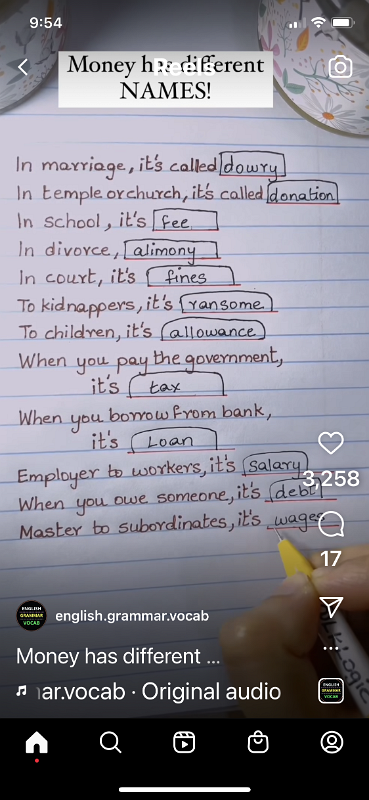 9:54
Reels
Money has different
NAMES!
In marriage, it's called dowry
In temple or church, it's called donation
In school, it's fee
In divorce, alimony
In court, it's fines
To kidnappers, it's ransome
To children, it's allowance
When you pay the government,
it's tax
When you borrow from bank,
it's Loan
Employer to workers, it's salary
When you owe someone, it's debt
Master to subordinates, it's wages
3,258
17
english.grammar.vocab
Money has different ...
ar.vocab · Original audio
ENGLISH
GRAMMAR
VOCAB